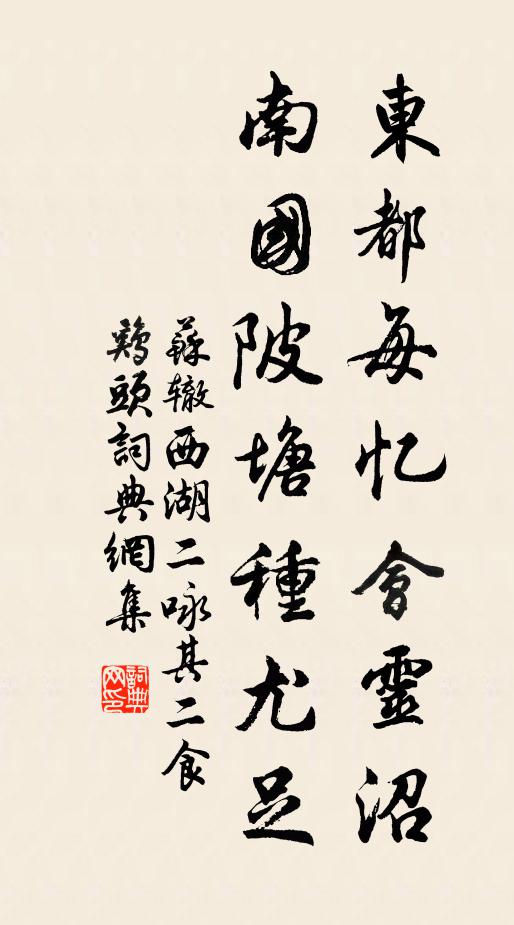 東都每忆會靈沼
南國陂塘種尤足
蘇辙西湖二咏其二食
鷄頭詞典網集
詞典
网印